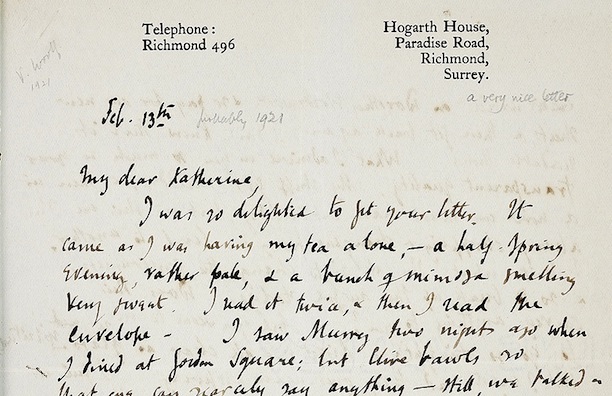 Telephone:
Richmond 496
Hogarth House,
Paradise Road,
Richmond,
Surrey.
V. Woolf
1921
a very nice letter
Feb. 13th probably 1921
My dear Katherine,
I was so delighted to get your letter. It
came as I was having my tea alone, – a half-spring
evening, rather pale, & a bunch of mimosa smelling
very sweet. I read it twice, & then I read the
envelope – I saw Murry two nights ago when
I dined at Gordon Square; but Clive bawls so
that one can scarcely say anything – still we talked